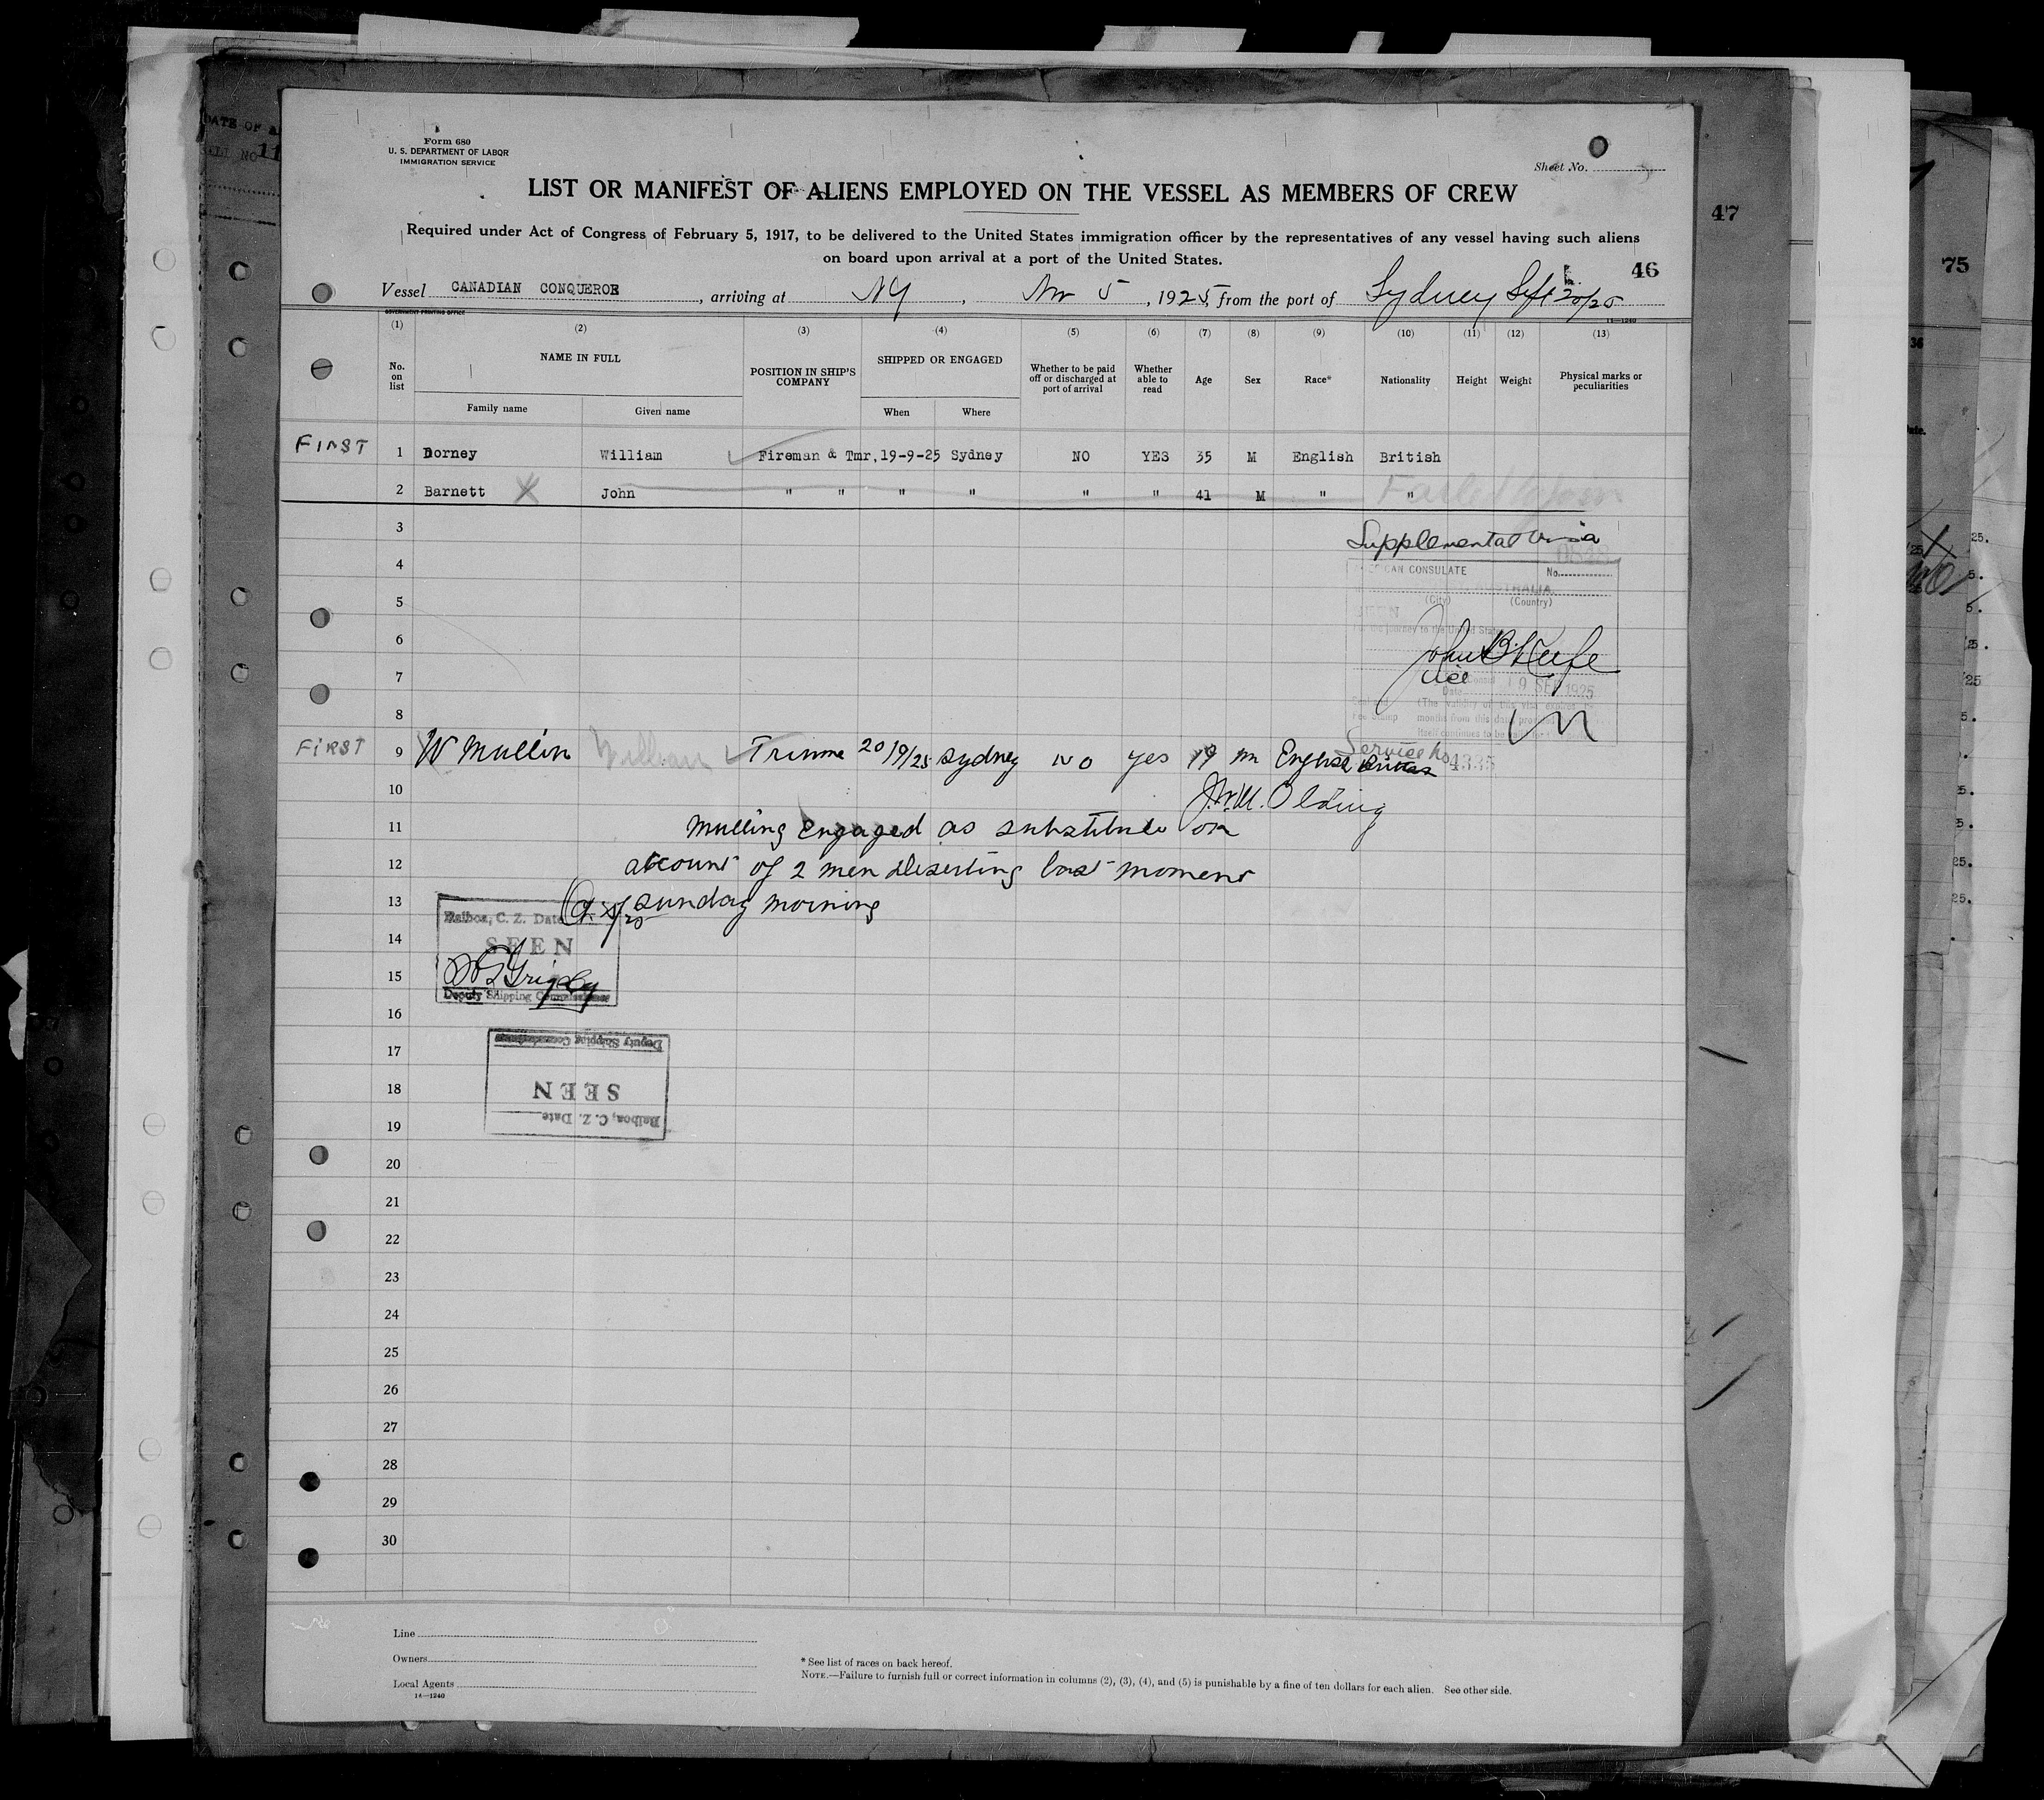 DATE OF
11
Form 680
U. S. DEPARTMENT OF LABOR
IMMIGRATION SERVICE
Sheet No.
LIST OR MANIFEST OF ALIENS EMPLOYED ON THE VESSEL AS MEMBERS OF CREW
47
Required under Act of Congress of February 5, 1917, to be delivered to the United States immigration officer by the representatives of any vessel having such aliens
on board upon arrival at a port of the United States.
46
75
Vessel CANADIAN CONQUEROR, arriving at NY, Nov 5, 1925, from the port of Sydney Sept 20/25
GOVERNMENT PRINTING OFFICE
11—1240
(1) (2) (3) (4) (5) (6) (7) (8) (9) (10) (11) (12) (13)
No. on list
NAME IN FULL
Family name
Given name
POSITION IN SHIP'S COMPANY
SHIPPED OR ENGAGED
When
Where
Whether to be paid off or discharged at port of arrival
Whether able to read
Age
Sex
Race*
Nationality
Height
Weight
Physical marks or peculiarities
FIRST 1 Dorney William Fireman & Tmr. 19-9-25 Sydney NO YES 35 M English British
2 Barnett X John " " " " " " 41 M " " Failed to join
3
Supplemental Visa
4
AMERICAN CONSULATE No.
AUSTRALIA
5
(City) (Country)
SEEN
For the journey to the United States
6
John B Keefe
7
Vice Consul
Date 19 SEP 1925
8
(The validity of this visa expires
months from this date provided
itself continues to be
FIRST 9 W Mullin William Trimme 20/9/25 Sydney No Yes 19 M English British
Service No 4335
10
J.W.M. Olding
11 Mulling Engaged as substitute on
12 account of 2 men deserting last moment
13 Sunday morning
Balboa, C. Z. Date
14
SEEN
15
Deputy Shipping Commissioner
16
17
Deputy Shipping Commissioner
18
SEEN
19
Balboa, C. Z. Date
20
21
22
23
24
25
26
27
28
29
30
Line
Owners
Local Agents
14—1240
* See list of races on back hereof.
NOTE.—Failure to furnish full or correct information in columns (2), (3), (4), and (5) is punishable by a fine of ten dollars for each alien. See other side.